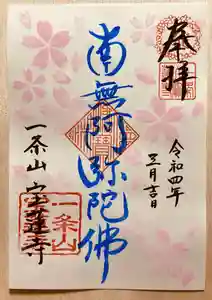 奉拝
令和四年
三月吉日
南無阿弥陀佛
一条山
一条山 宝蓮寺